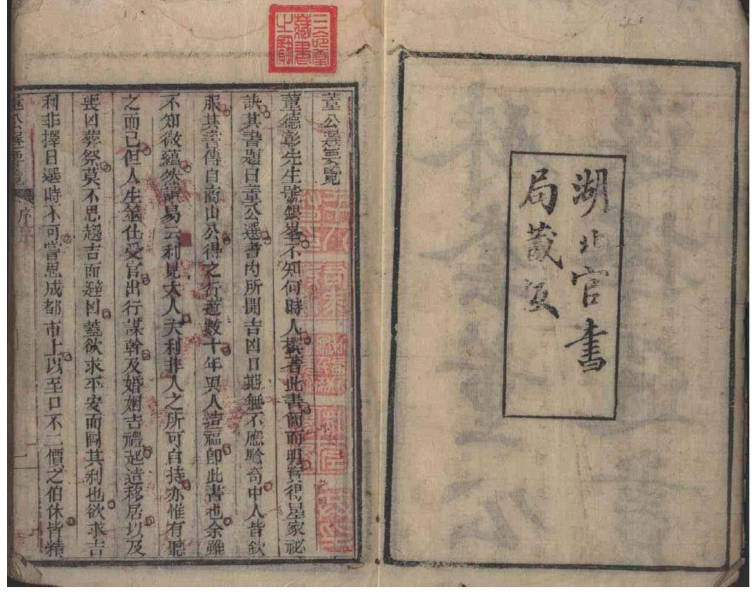 湖北官書
局藏板
董公選要覽
董德彰先生號銀峯不知何時人撰著此書簡而明實得星家祕
訣其書題曰董公選書內所開吉凶日期無不應騐奇中人皆欽
服其書傳自前山公得之行道數十年與人造福卽此書也余雖
不知做蘊然讀易云利見大人夫利非人之所可自持亦惟有聽
之而已但人生筮仕受官出行謀幹及婚姻吉禮起造移居以及
喪凶葬祭莫不思趨吉而避凶蓋欲求平安而圖其利也欲求吉
利非擇日選時不可嘗思成都市上以至口不二價之伯休皆精
序